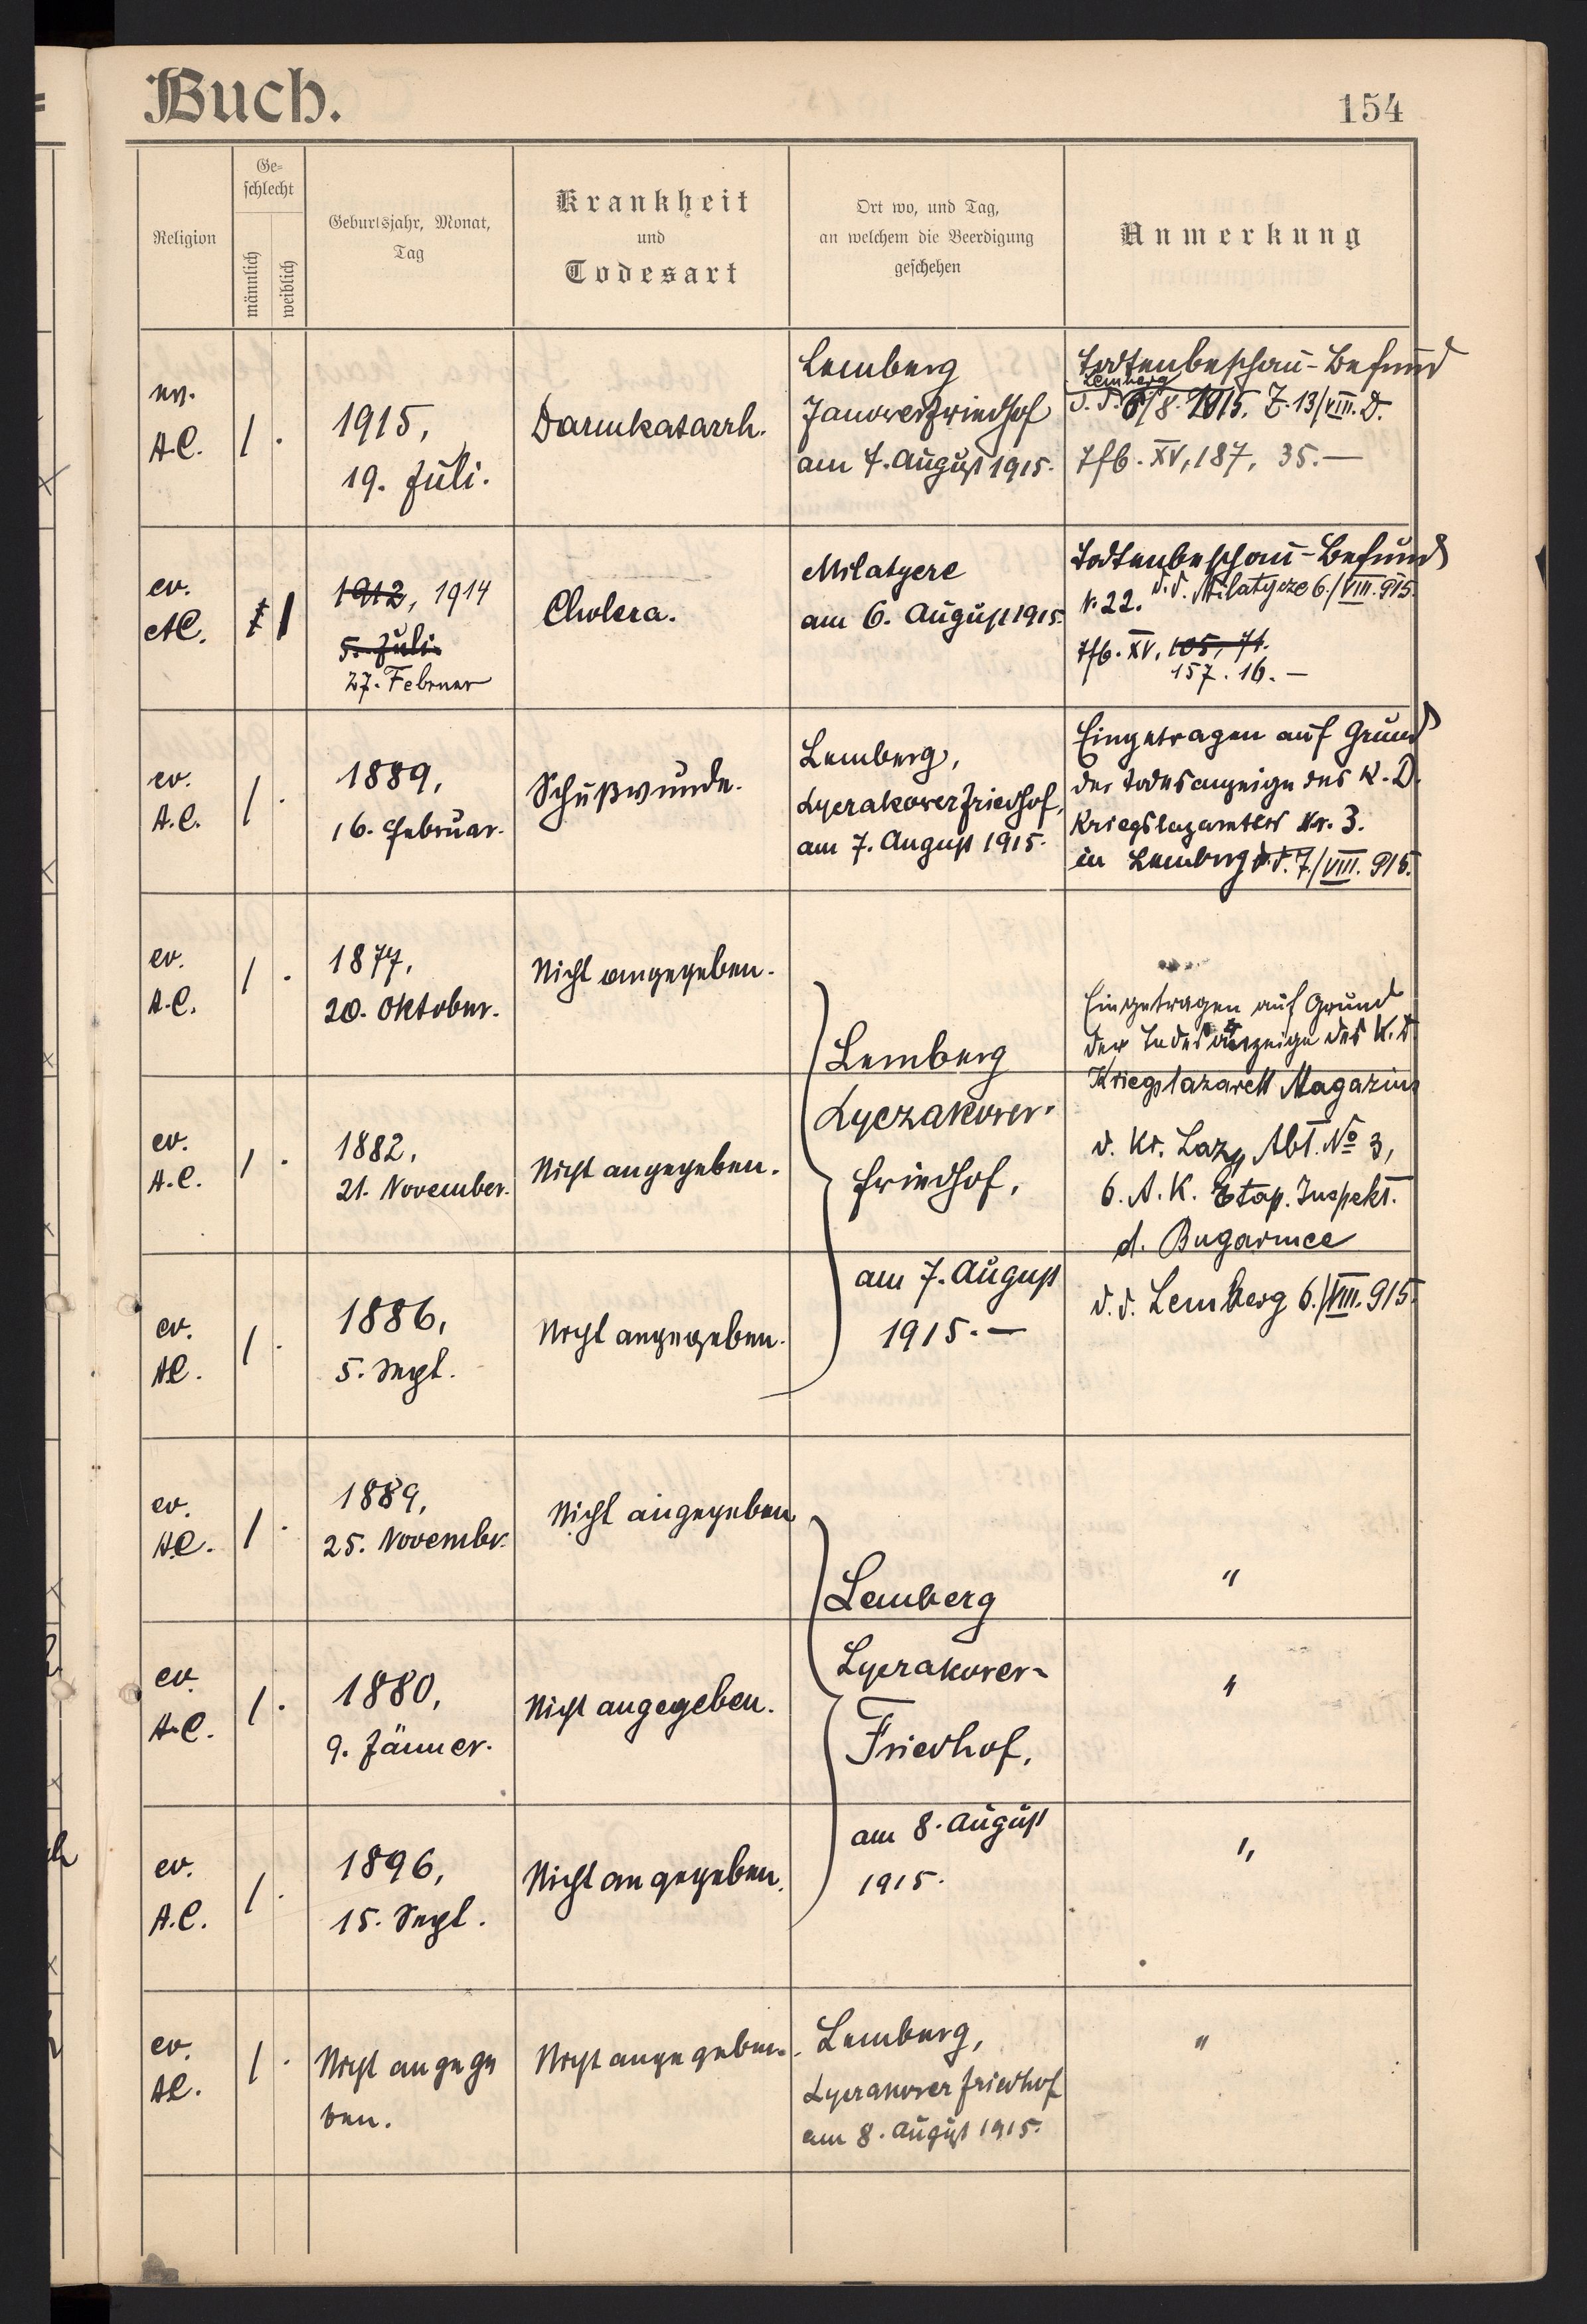 Buch.
154
Religion
Ge-
schlecht
männlich
weiblich
Geburtsjahr, Monat,
Tag
Krankheit
und
Todesart
Ort wo, und Tag,
an welchem die Beerdigung
geschehen
Anmerkung
ev.
A.C.
1 .
1915,
19. Juli.
Darmkatarrh.
Lemberg
Janower Friedhof
am 7. August 1915.
Todtenbeschau-Befund
Lemberg
d. d. 6/8. 1915. Z. 13/VIII. D.
Tfb. XV, 187, 35.—
ev.
AC.
1
1912, 1914
5. Juli
27. Februar
Cholera.
Milatycze
am 6. August 1915.
Todtenbeschau-Befund
N. 22. d. d. Milatycze 6./VIII. 915.
Tfb. XV, 105, 71.
157. 16.—
ev.
A.C.
1 .
1889,
16. Februar.
Schußwunde.
Lemberg,
Lyczakower Friedhof,
am 7. August 1915.
Eingetragen auf Grund
der Todesanzeige des K. D.
Kriegslazarettes Nr. 3.
in Lemberg d. d. 7./VIII. 915.
ev.
A.C.
1 .
1877,
20. Oktober.
Nicht angegeben.
Lemberg
Lyczakower-
friedhof,
am 7. August
1915.—
Eingetragen auf Grund
der Todesanzeige des K. D.
Kriegslazarett Magazins
d. Kr. Laz. Abt. No 3,
6. A. K. Etap. Inspekt.
d. Bugarmee
d. d. Lemberg 6./VIII. 915.
ev.
A.C.
1 .
1882,
21. November.
Nicht angegeben.
ev.
AC.
1 .
1886,
5. Sept.
Nicht angegeben.
ev.
A.C.
1 .
1889,
25. Novembr.
Nicht angegeben.
Lemberg
Lyczakower-
Friedhof,
am 8. August
1915.
"
ev.
A.C.
1 .
1880,
9. Jänner.
Nicht angegeben.
"
ev.
A.C.
1 .
1896,
15. Sept.
Nicht angegeben.
"
ev.
AC.
1 .
Nicht angege
ben.
Nicht angegeben.
Lemberg,
Lyczakower Friedhof
am 8. August 1915.
"